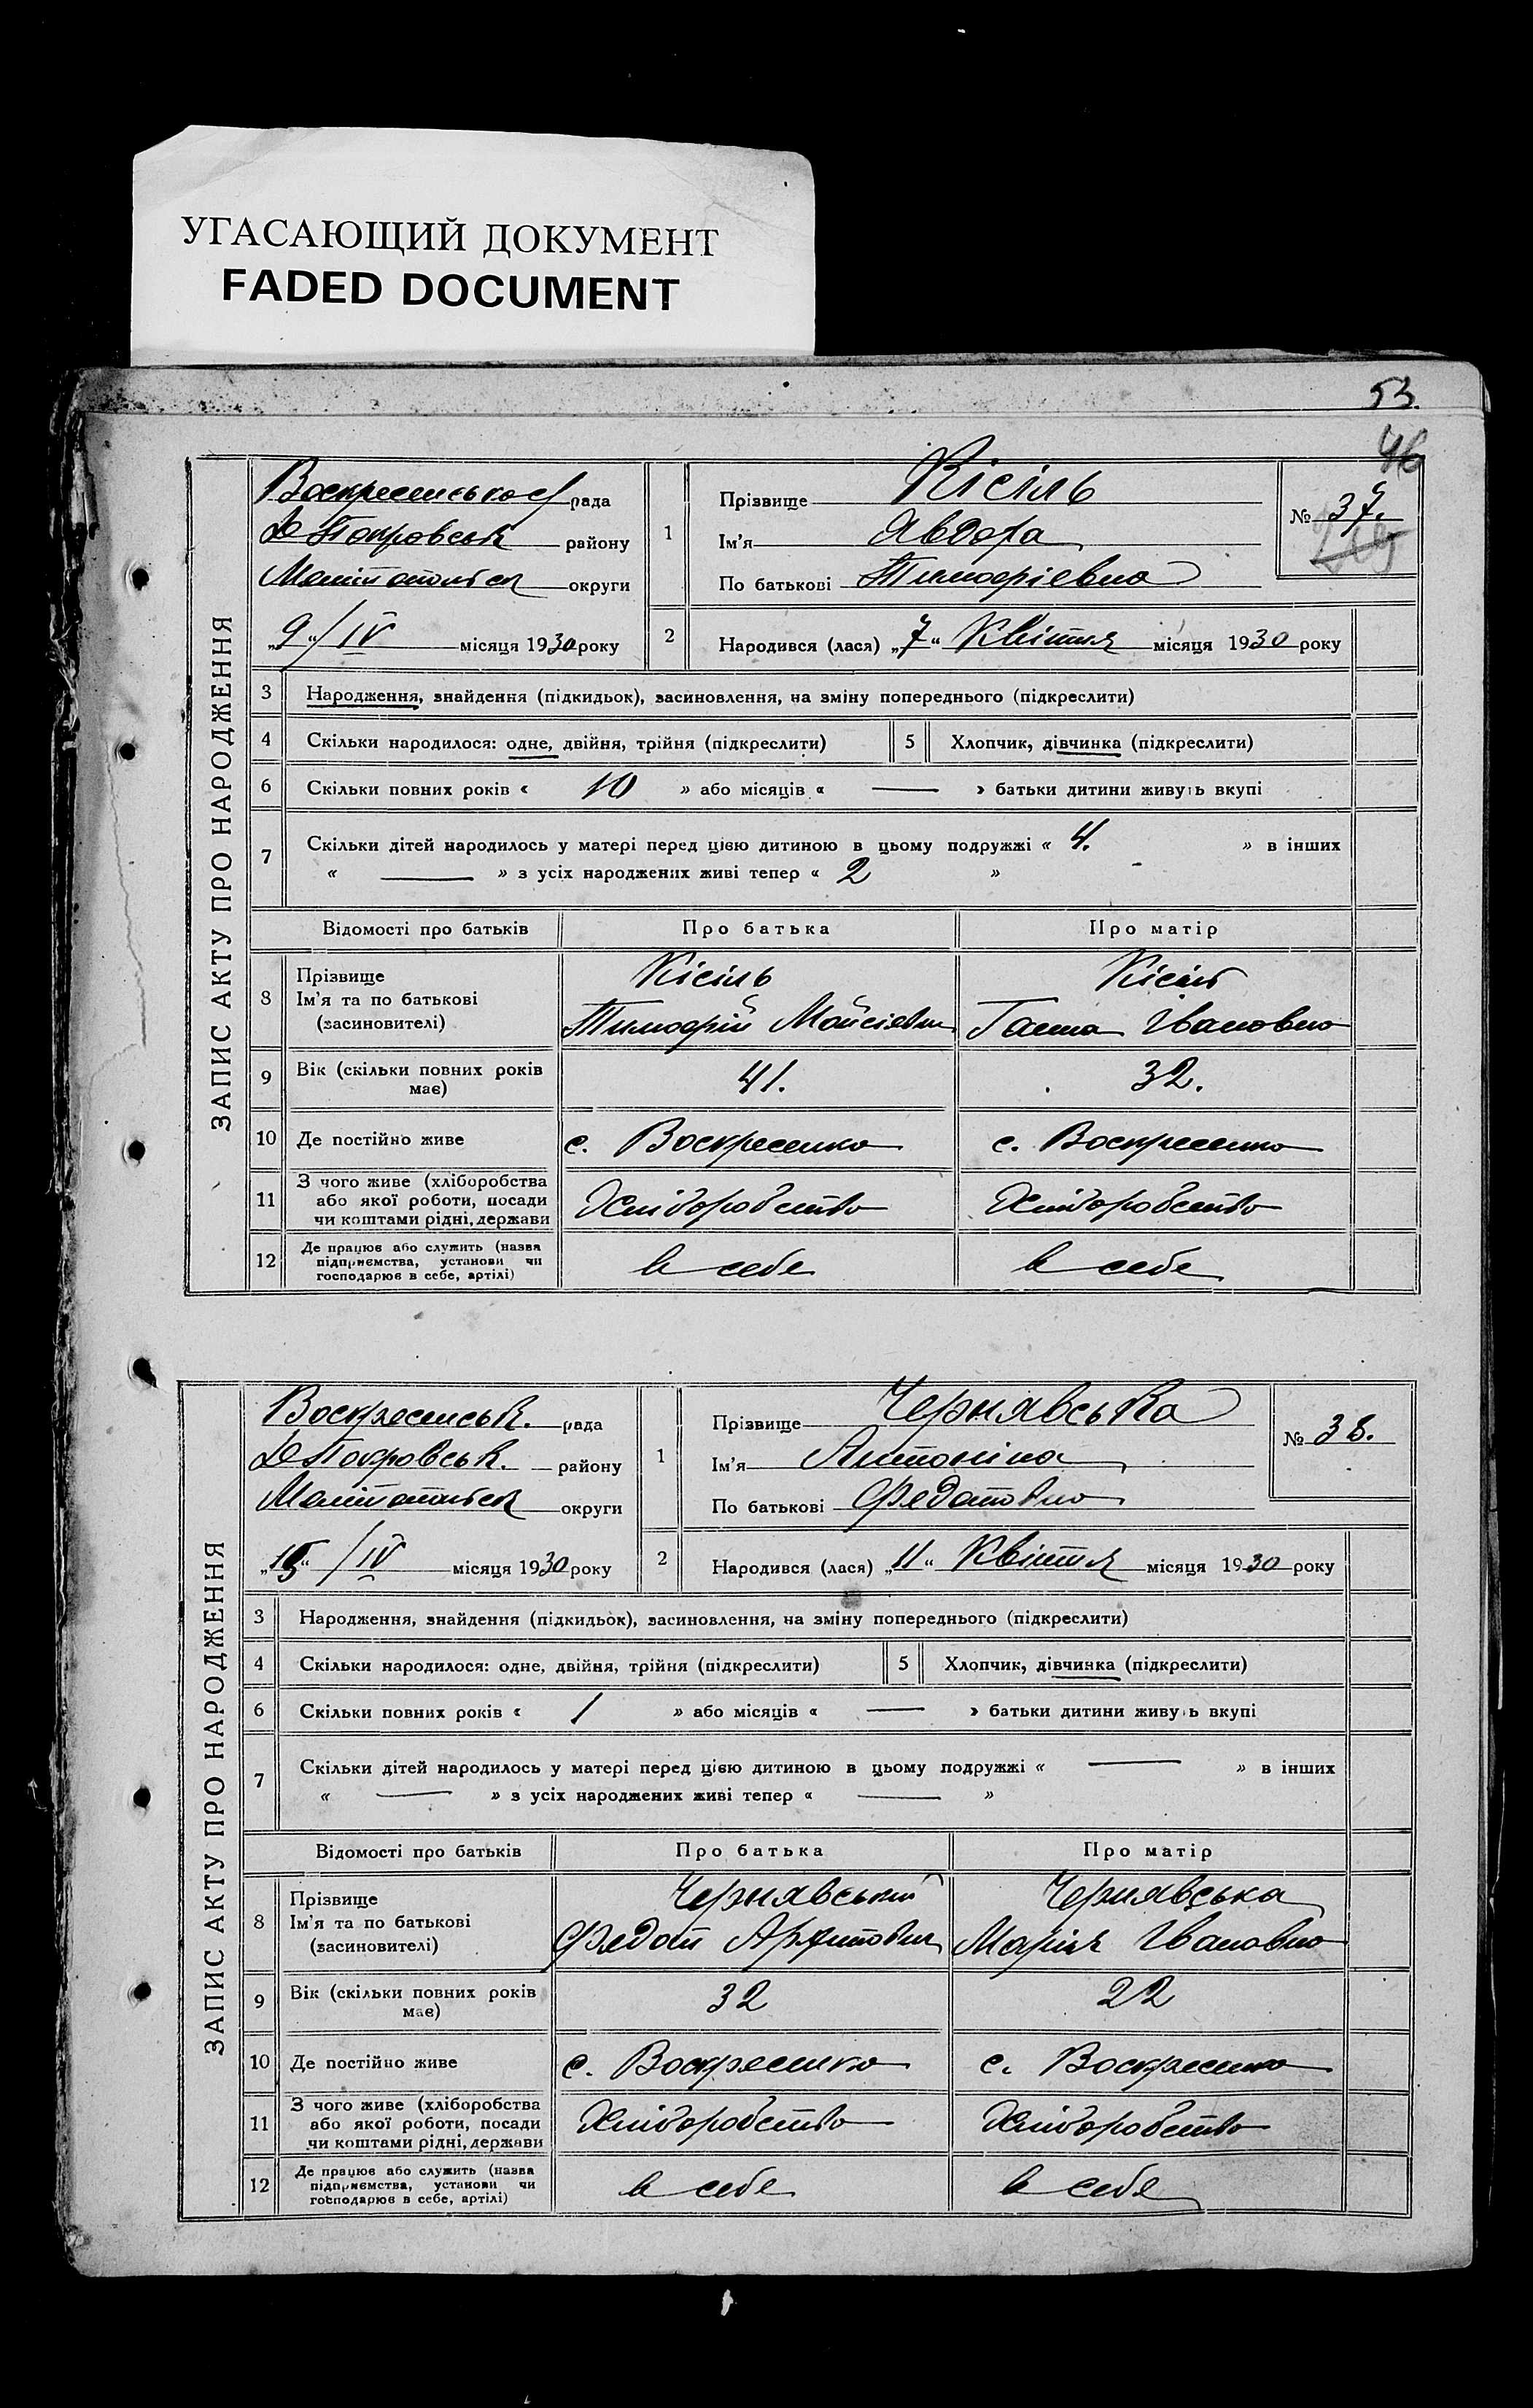 УГАСАЮЩИЙ ДОКУМЕНТ
FADED DOCUMENT
53.
46
ЗАПИС АКТУ ПРО НАРОДЖЕННЯ
Воскресенсько рада
Д-Покровськ району
Меліпопольськ округи
„9“/IV місяця 1930 року
1 Прізвище Кісіль
Ім'я Явдоха
По батькові Тимофіевна
№ 37.
2 Народився (лася) „7“ Квітня місяця 1930 року
3 Народження, знайдення (підкидьок), засиновлення, на зміну попереднього (підкреслити)
4 Скільки народилося: одне, двійня, трійня (підкреслити) 5 Хлопчик, дівчинка (підкреслити)
6 Скільки повних років « 10 » або місяців « — » батьки дитини живуть вкупі
7 Скільки дітей народилось у матері перед цією дитиною в цьому подружжі « 4. » в інших
« — » з усіх народжених живі тепер « 2 »
Відомості про батьків Про батька Про матір
8 Прізвище Кісіль Кісіль
Ім'я та по батькові Тимофій Мойсієвич Ганна Івановна
(засиновителі)
9 Вік (скільки повних років має) 41. 32.
10 Де постійно живе с. Воскресенка с. Воскресенка
11 З чого живе (хліборобства або якої роботи, посади чи коштами рідні, держави Хліборобство Хліборобство
12 Де працює або служить (назва підприємства, установи чи господарює в себе, артілі) в себе в себе
ЗАПИС АКТУ ПРО НАРОДЖЕННЯ
Воскресенськ. рада
Д-Покровськ. району
Меліпопольськ округи
„15“/IV місяця 1930 року
1 Прізвище Чернявська
Ім'я Антоніна
По батькові Федотовна
№ 38.
2 Народився (лася) „11“ Квітня місяця 1930 року
3 Народження, знайдення (підкидьок), засиновлення, на зміну попереднього (підкреслити)
4 Скільки народилося: одне, двійня, трійня (підкреслити) 5 Хлопчик, дівчинка (підкреслити)
6 Скільки повних років « 1 » або місяців « — » батьки дитини живуть вкупі
7 Скільки дітей народилось у матері перед цією дитиною в цьому подружжі « — » в інших
« — » з усіх народжених живі тепер « — »
Відомості про батьків Про батька Про матір
8 Прізвище Чернявський Чернявська
Ім'я та по батькові Федот Марія Івановна
(засиновителі)
9 Вік (скільки повних років має) 32 22
10 Де постійно живе с. Воскресенка с. Воскресенка
11 З чого живе (хліборобства або якої роботи, посади чи коштами рідні, держави Хліборобство Хліборобство
12 Де працює або служить (назва підприємства, установи чи господарює в себе, артілі) в себе в себе